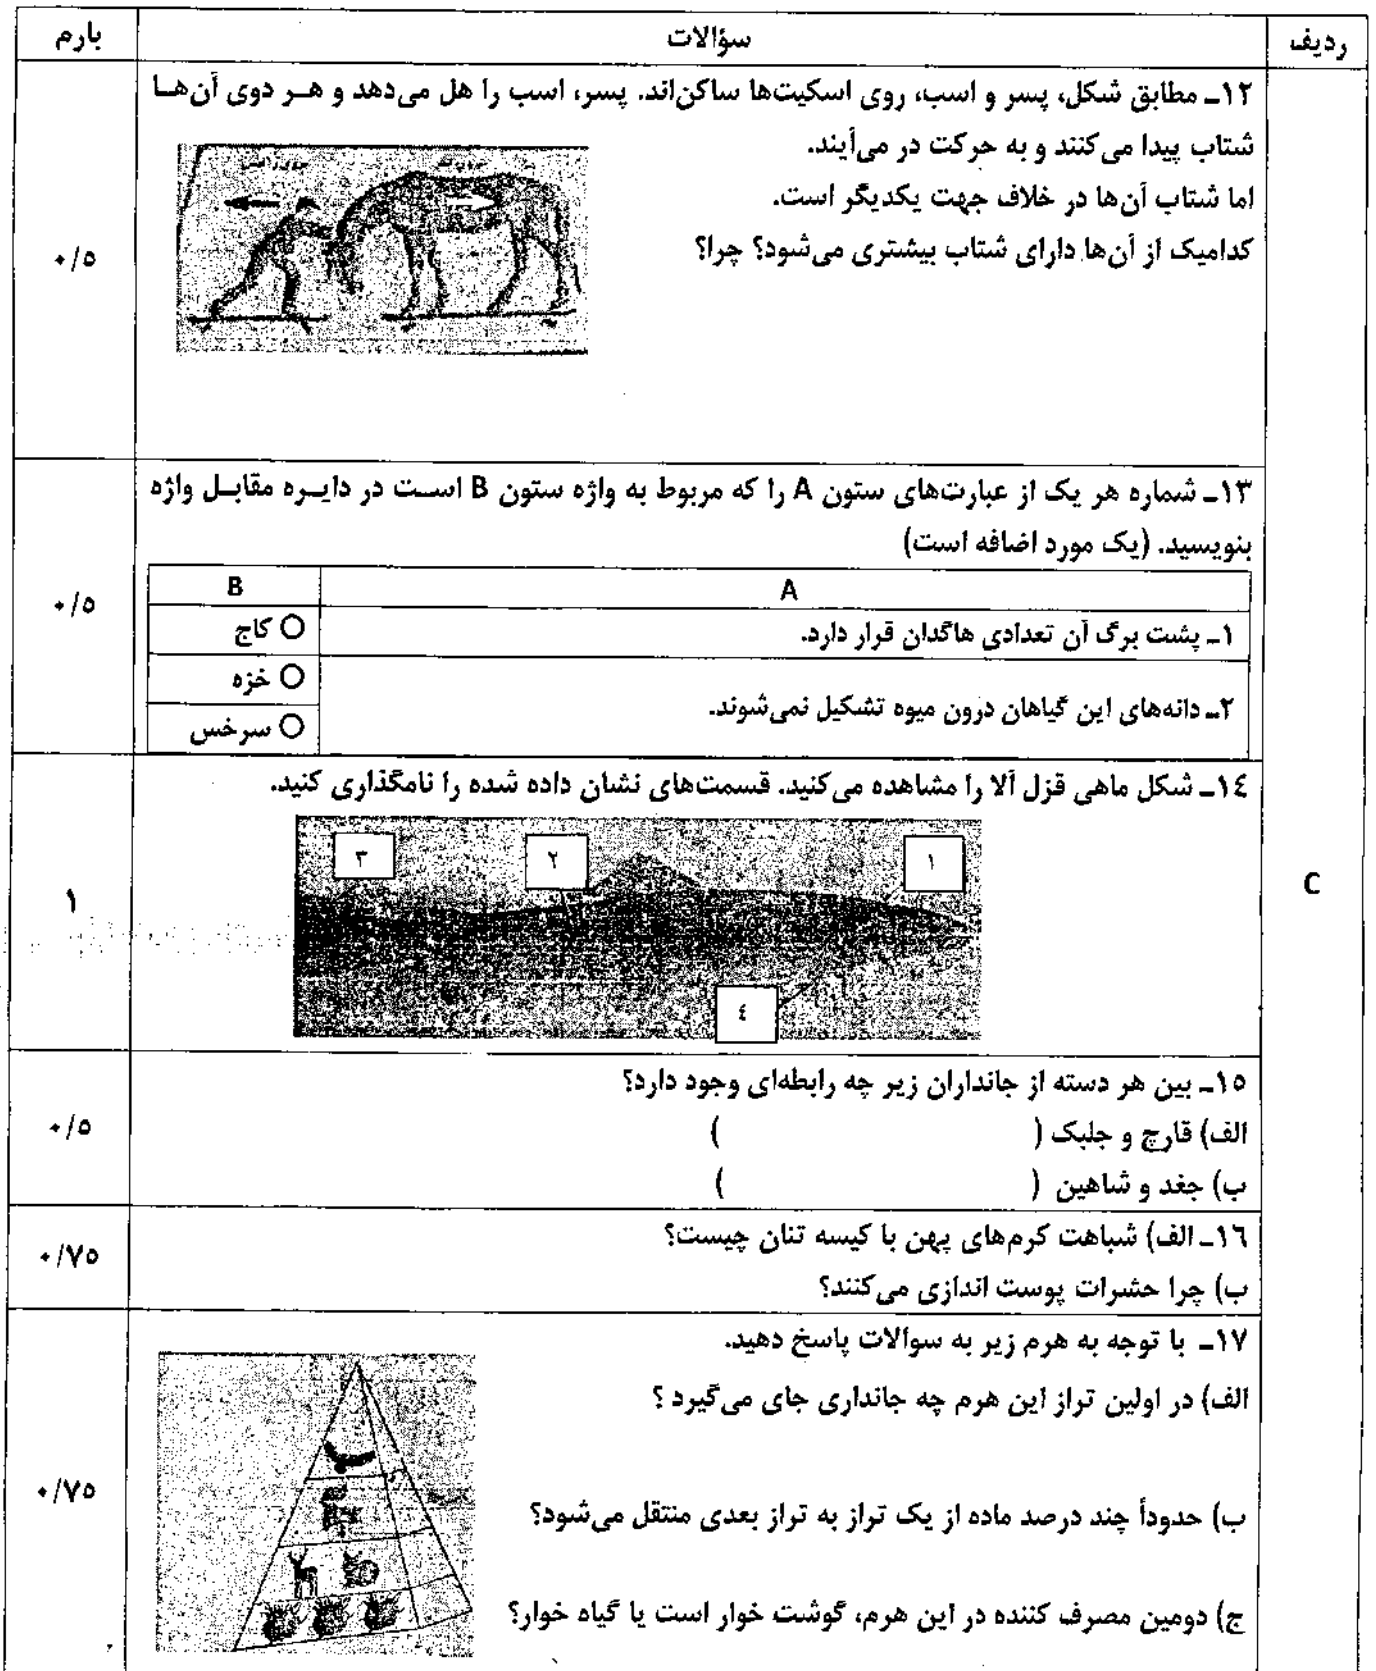 ردیف سؤالات بارم
۱۲ـ مطابق شکل، پسر و اسب، روی اسکیت‌ها ساکن‌اند. پسر، اسب را هل می‌دهد و هـر دوی آن‌هـا
شتاب پیدا می‌کنند و به حرکت در می‌آیند.
اما شتاب آن‌ها در خلاف جهت یکدیگر است.
کدامیک از آن‌ها دارای شتاب بیشتری می‌شود؟ چرا؟
۰/۵
۱۳ـ شماره هر یک از عبارت‌های ستون A را که مربوط به واژه ستون B اسـت در دایـره مقابـل واژه
بنویسید. (یک مورد اضافه است)
۰/۵
A B
۱ـ پشت برگ آن تعدادی هاگدان قرار دارد. کاج
۲ـ دانه‌های این گیاهان درون میوه تشکیل نمی‌شوند. خزه
سرخس
۱۴ـ شکل ماهی قزل آلا را مشاهده می‌کنید. قسمت‌های نشان داده شده را نامگذاری کنید.
۱
۲
۳
۴
C
۱
۱۵ـ بین هر دسته از جانداران زیر چه رابطه‌ای وجود دارد؟
الف) قارچ و جلبک ( )
ب) جغد و شاهین ( )
۰/۵
۱۶ـ الف) شباهت کرم‌های پهن با کیسه تنان چیست؟
ب) چرا حشرات پوست اندازی می‌کنند؟
۰/۷۵
۱۷ـ با توجه به هرم زیر به سوالات پاسخ دهید.
الف) در اولین تراز این هرم چه جانداری جای می‌گیرد ؟
ب) حدوداً چند درصد ماده از یک تراز به تراز بعدی منتقل می‌شود؟
ج) دومین مصرف کننده در این هرم، گوشت خوار است یا گیاه خوار؟
۰/۷۵